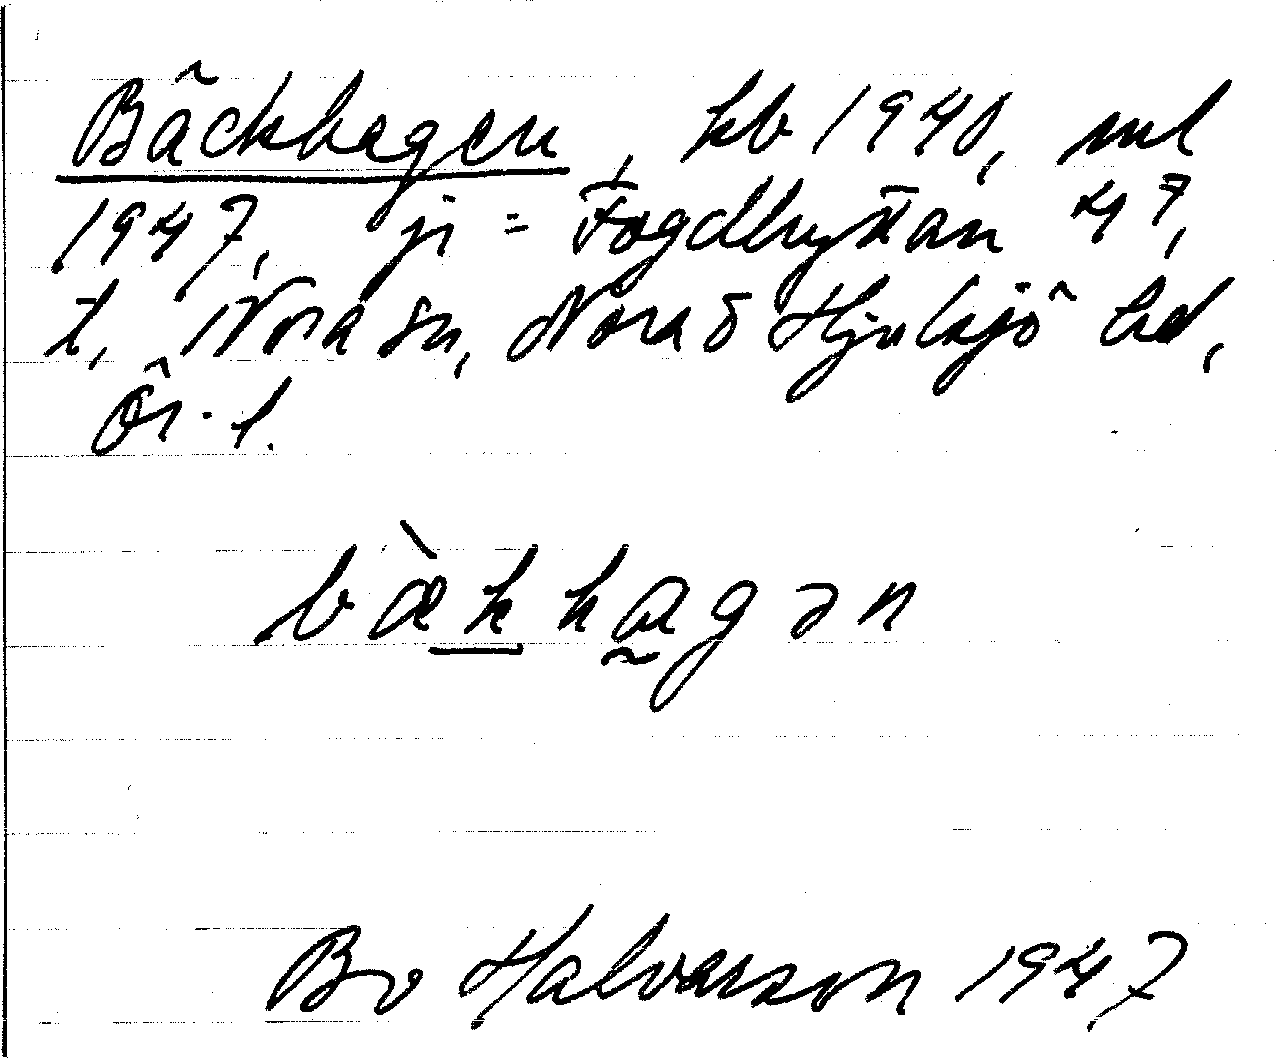 Bäckhagen, kb 1940, ml
1947, ji = Fogdhyttan 4⁷,
t, Nora sn, Nora o Hjulsjö hd,
Ör. l.
bæ̀kkagən
Bo Halvarson 1947